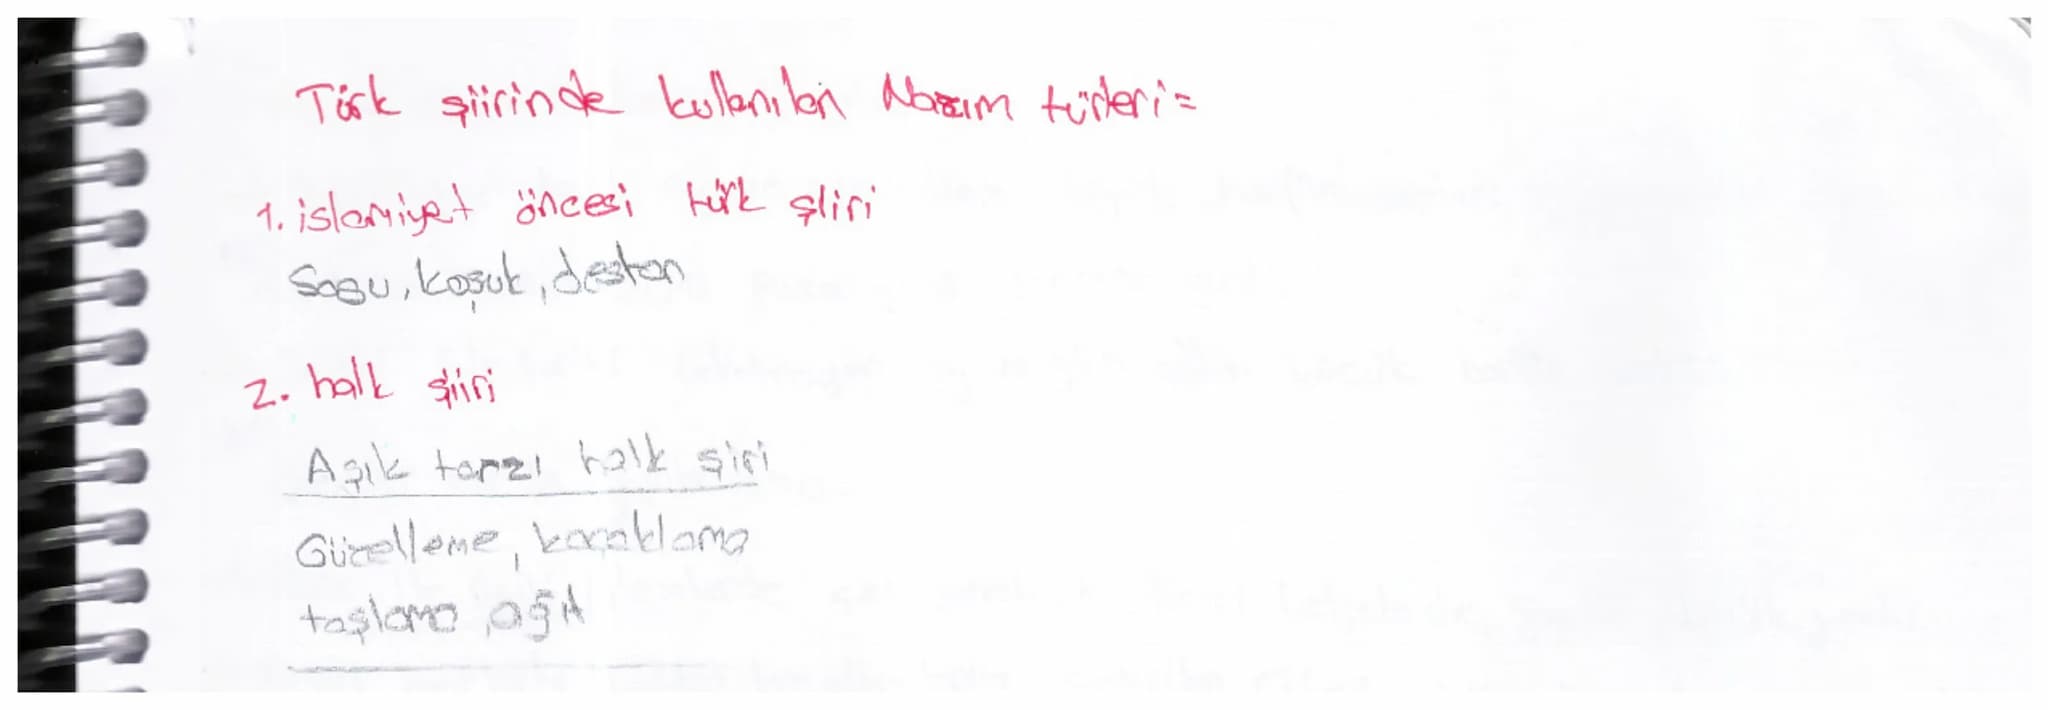 Türk şiirinde kullanılan Nazım türleri=
1. islamiyet öncesi türk şiiri
Sagu, koşuk, destan
2. halk şiiri
Aşık tarzı halk şiri
Güzelleme, koçaklama
taşlama, ağıt